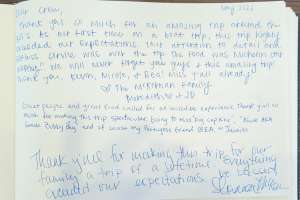 Dear Crew, May 2022
Thank you so much for an amazing trip around the
As our first time on a boat trip, this trip highly
exceeded our expectations. Your attention to detail and
service was over the top. The food was Michelin star
We will never forget you guys & this amazing trip
Thank you Nicola, & Bea! Miss y'all already!
♡ The McKiernan Family
Great people and great food called for an incredible experience. Thank you so
much for making this trip spectacular. Going to miss "my captain",
and of course my Portuguese friend BEA.
Thank you for making this trip for our
family a trip of a lifetime. Everything
exceeded our expectations